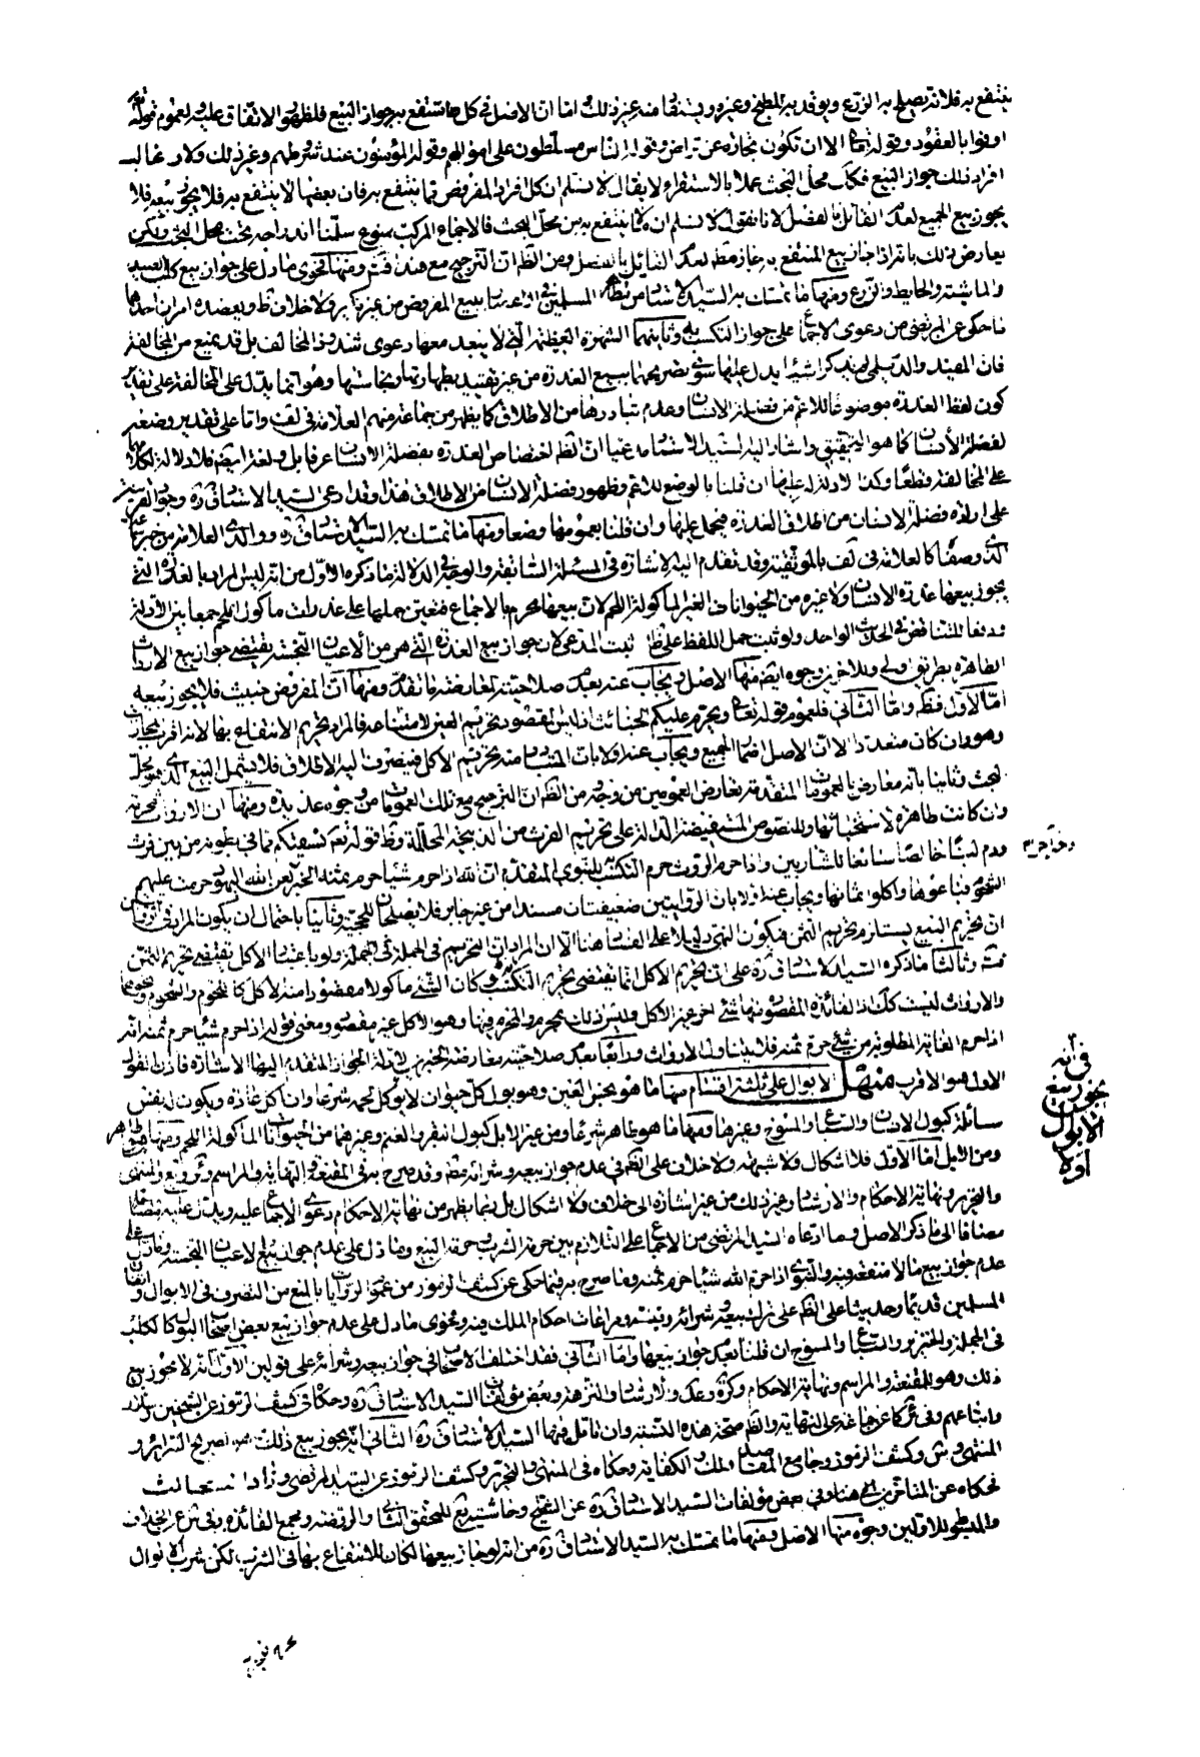 ينتفع به فلانه يصلح به الزرع ويوقد به المطبخ وغيره ويستفاد منه غير ذلك اما ان الاصل فى كل ما ينتفع به جواز البيع فلظهور الاتفاق عليه ولعموم قوله تعالى
اوفوا بالعقود وقوله تعالى الا ان تكون تجارة عن تراض وقوله الناس مسلطون على اموالهم وقوله المؤمنون عند شروطهم وغير ذلك ولان غالب
افراد ذلك جواز البيع فكك محل البحث عملا بالاستقراء ولا يقال لا نسلم ان كل افراد المفروض مما ينتفع به فان بعضها لا ينتفع به فلا يجوز بيعه فلا
يجوز بيع الجميع لعدم القائل بالفصل لانا نقول لا نسلم ان ما ينتفع به من محل البحث فالاجماع المركب ممنوع سلمنا اندراجه تحت محل البحث ولكن
يعارض ذلك بانه اذا جاز بيع المنتفع به جاز مطلقا لعدم القائل بالفصل ومن الظ ان الترجيح مع هذا ومنها فحوى ما دل على جواز بيع كلب الصيد
والماشية والحايط والزرع ومنها ما تمسك به السيد الاستاد من المسلمين فى الاعصار ببيع المفروض من غير نكير ولا خلاف ويعضده امران احدهما
ما حكى عن المرتضى من دعوى الاجماع على جواز التكسب به وثانيهما الشهرة العظيمة التى لا يبعد معها دعوى شذوذ المخالف بل قد يمنع من المخالفة
فان المفيد والديلمى لم يذكرا شيئا يدل عليها سوى تصريحهما ببيع العذرة من غير تقييد بطهارتها ونجاستها وهو انما يدل على المخالفة على تقدير
كون لفظ العذرة موضوعا للاعم من فضلة الانسان وعدم تبادرها من الاطلاق كما يظهر من جماعة منهم العلامة فى لف واما على تقدير وضعه
لفضلة الانسان كما هو التحقيق واشار اليه السيد الاستاد مدعيا ان الظ اختصاص العذرة بفضلة الانسان عرفا بل ولغة ايضا فلا دلالة لكلامهما
على المخالفة قطعا وكذا لا دلالة عليها ان قلنا بالوضع للاعم وظهور فضلة الانسان من الاطلاق هذا وقد ادعى السيد الاستاد قده وجود القرينة
على ارادة فضلة الانسان من اطلاق العذرة فيحمل عليها وان قلنا بعمومها وضعا ومنها ما تمسك به السيد الاستاد قده ووالدى العلامة من خبر سماعة
الذى وصفه كالعلامة فى لف بالموثقية وقد تقدم اليه الاشارة فى المسئلة السابقة والوجه فى الدلالة ما ذكره الاول من انه ليس المراد بالعذرة التى
يجوز بيعها عذرة الانسان ولا غيره من الحيوانات الغير الماكولة اللحم لان بيعها محرم بالاجماع فتعين حملها على عذرات ماكول اللحم جمعا بين الادلة
ودفعا للتناقض فى الحديث الواحد ولو ثبت حمل اللفظ على ثبت المدعى لان جواز بيع العذرة التى هى من الاعيان النجسة يقتضى جواز بيع الارواث
الطاهرة بطريق اولى وللاخرين وجوه ايضا منها الاصل ويجاب عنه بعدم صلاحيته لمعارضة ما تقدم ومنها ان المفروض خبيث فلا يجوز بيعه
اما الاول فظ واما الثانى فلعموم قوله تعالى ويحرم عليكم الخبائث اذ ليس المقصود تحريم العين لامتناعه فالمراد تحريم الانتفاع بها لانه اقرب المجازات
وهو وان كان متعددا الا ان الاصل اضمار الجميع ويجاب عنه اولا بان المتبادر منه تحريم الاكل فينصرف اليه الاطلاق فلا يشمل البيع الذى هو محل
البحث وثانيا بانه معارض بالعمومات المتقدمة تعارض العمومين من وجه ومن الظ ان الترجيح مع تلك العمومات من وجوه عديدة ومنها ان الارواث محرمة
وان كانت طاهرة لاستخباثها وللنصوص المستفيضة الدالة على تحريم الفرث من الذبيحة المحللة وظ قوله تعالى نسقيكم مما فى بطونه من بين فرث
ودم لبنا خالصا سائغا للشاربين واذا حرم الروث حرم التكسب به للنبوى المتقدم ان الله اذا حرم شيئا حرم ثمنه الخبر لعن الله اليهود حرمت عليهم
الشحوم فباعوها واكلوا ثمانها ويجاب عنه اولا بان الروايتين ضعيفتان مسندا من غير جابر فلا يصلحان للحجية وثانيا باحتمال ان يكون المراد
ان تحريم البيع يستلزم تحريم الثمن فيكون النهى دليلا على الفساد هنا الا ان المراد ان التحريم فى الجملة فى الجملة ولو باعتبار الاكل يقتضى تحريم الثمن
وثالثا ما ذكره السيد الاستاد قده على ان تحريم الاكل انما يقتضى تحريم التكسب لو كان الشىء ماكولا مقصودا منه الاكل كاللحوم والشحوم ونحوهما
والارواث ليست كك اذ الفائدة المقصودة منها شىء اخر غير الاكل وليس ذلك بمحرم والمحرم فيها وهو الاكل غير مقصود ومعنى قوله اذا حرم شيئا حرم ثمنه انه
اذا حرم الغاية المطلوبة من شىء حرم ثمنه فلا يتناول الارواث ورابعا بعدم صلاحيته لمعارضة الخبرين لادلة الجواز المتقدم اليها الاشارة فاذن القول
الاول هو الاقرب منهل الابوال على ثلثة اقسام منها ما هو نجس العين وهو بول كل حيوان لا يؤكل لحمه شرعا وان اكل عادة ويكون له نفس
سائلة كبول الانسان والسباع والمسوخ وغيرها ومنها ما هو طاهر شرعا ومن غير الابل كبول البقر والغنم وغيرهما من الحيوانات الماكولة اللحم ومنها ما هو طاهر
ومن الابل اما الاول فلا اشكال ولا شبهة ولا خلاف على الظ فى عدم جواز بيعه وشرائه مطلقا وقد صرح به فى المقنعة والنهاية والمراسم وئر ويع والمنتهى
والتحرير ونهاية الاحكام والارشاد وغير ذلك من غير اشارة الى خلاف ولا اشكال بل ربما يظهر من نهاية الاحكام دعوى الاجماع عليه ويدل عليه
مضافا الى ما ذكر الاصل وما ادعاه السيد المرتضى من الاجماع على التلازم بين حرمة الشرب وحرمة البيع وما دل على عدم جواز بيع الاعيان النجسة وما دل على
عدم جواز بيع ما لا منفعة فيه والنبوى اذا حرم الله شيئا حرم ثمنه وما صرح به فيما حكى عن كشف الرموز من عموم الروايات بالمنع من التصرف فى الابوال واتفاق
المسلمين قديما وحديثا على الظ على ترك بيعه وشرائه وقنيته ومراعات احكام الملك فيه وفحوى ما دل على عدم جواز بيع بعض اصحاب البول كالكلب
فى الجملة والخنزير والسباع والمسوخ ان قلنا بعدم جواز بيعها واما الثانى فقد اختلف الاصحاب فى جواز بيعه وشرائه على قولين الاول انه لا يجوز بيع
ذلك وهو للمقنعة والمراسم ونهاية الاحكام وكره وعد ولارشاد والتنزهة وبعض مؤلفات السيد الاستاد قده وحكاه فى كشف الرموز عن الشيخين وسلار
واتباعهم وفى ئر كما عن جماعة عن النهاية والظ صحة هذه النسبة وان تامل فيها السيد الاستاد قده الثانى انه يجوز بيع ذلك وهو لصريح السرائر و
المنتهى وس وكشف الرموز وجامع المقاصد ولك والكفاية وحكاه فى المنتهى والتحرير وكشف الرموز عن السيد المرتضى وزاد
فحكاه عن المتاخرين هنا وفى بعض مؤلفات السيد الاستاد قده عن التنقيح وحاشية يع للمحقق الثانى والروضة ومجمع الفائدة وفى شرع عن الخلاف
والمبسوط للاولين وجوه منها الاصل ومنها ما تمسك به السيد الاستاد قده من انه لو جاز بيعها لكان للانتفاع بها فى الشرب لكن شرب الابوال
فى انه
يجوز بيع
الابوال
اولا